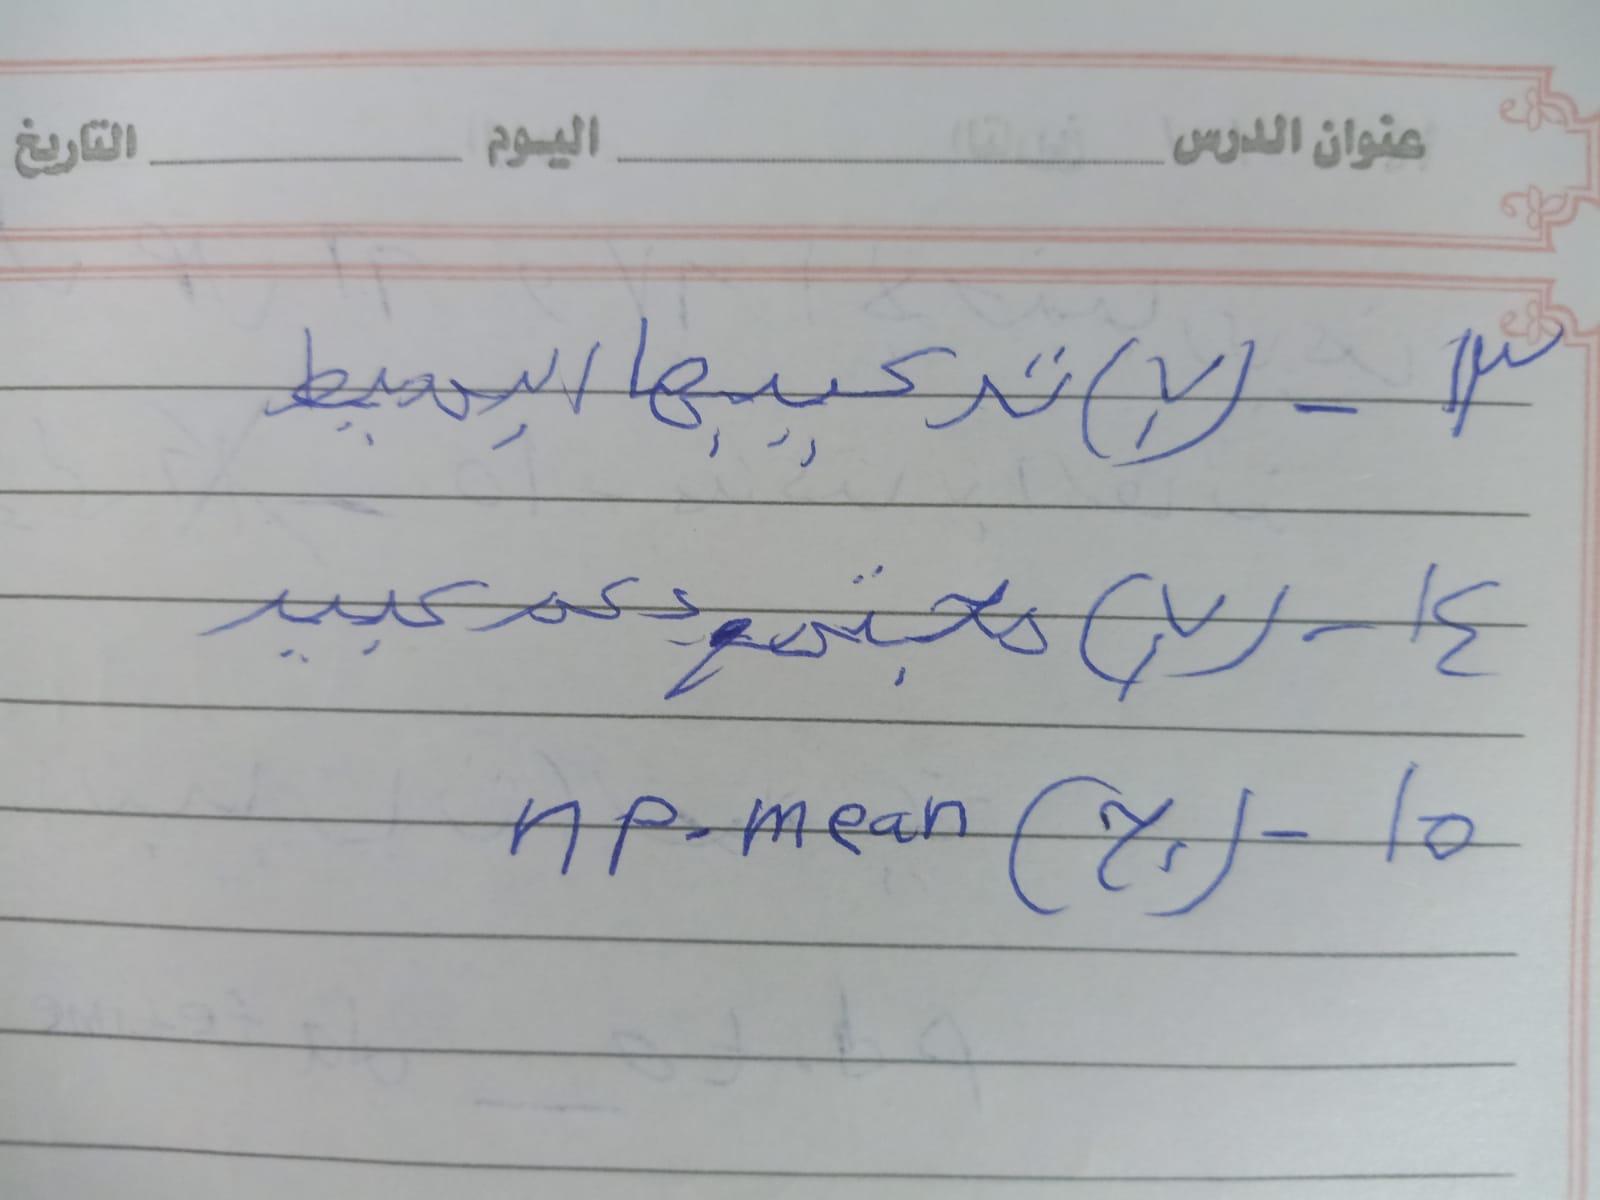 عنوان الدرس اليوم التاريخ
١٣ - (ب) تركيبها البسيط
١٤ - (ب) مجتمع دعم كبير
١٥ - (ج) np.mean